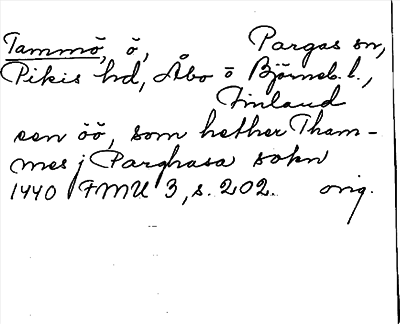 Tammō, ö, Pargas sn,
Pikis hd, Åbo o Björneb. l.,
Finland
een öö, som hether Tham-
mes j Parghasa sokn
1440 FMU 3, s. 202. orig.